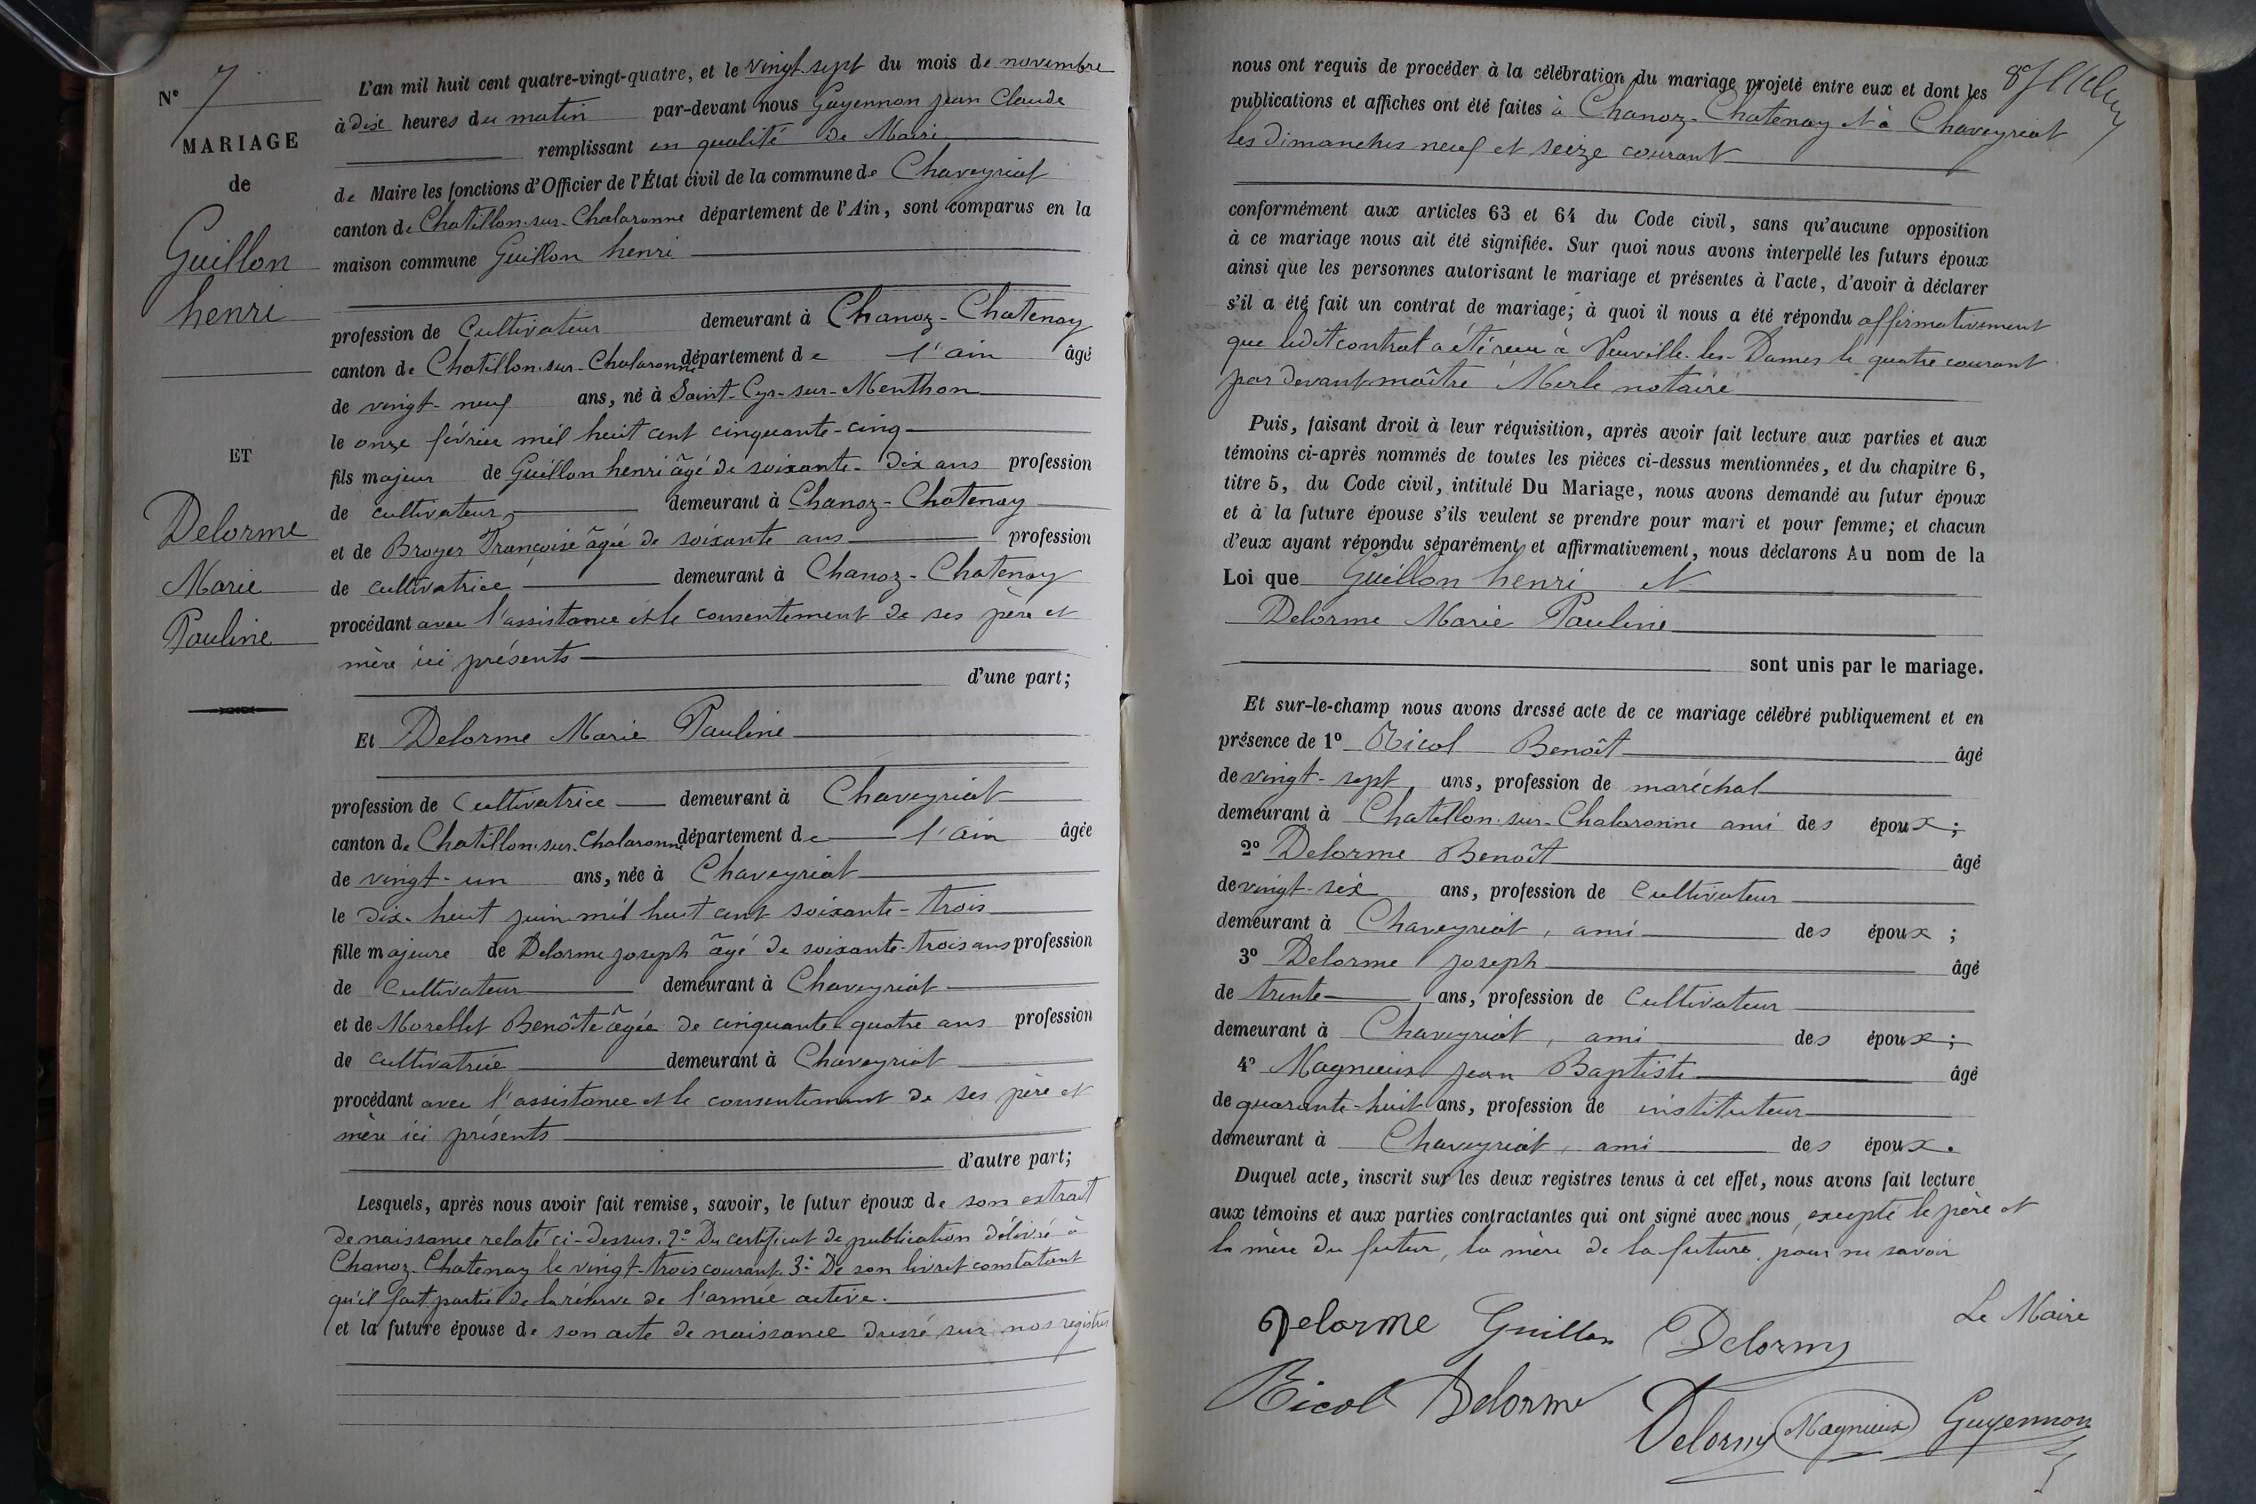 N° 7
MARIAGE
de
Guillon
henri
ET
Delorme
Marie
Pauline
L'an mil huit cent quatre-vingt-quatre, et le vingt-sept du mois de novembre
à dix heures du matin par-devant nous Guyennon jean Claude
remplissant en qualité de Maire
de Maire les fonctions d'Officier de l'État civil de la commune de Chaveyriat
canton de Chatillon-sur-Chalaronne département de l'Ain, sont comparus en la
maison commune Guillon henri
profession de Cultivateur demeurant à Chanoz-Chatenay
canton de Chatillon-sur-Chalaronne département de l'ain âgé
de vingt-neuf ans, né à Saint-Cyr-sur-Menthon
le onze février mil huit cent cinquante-cinq
fils majeur de Guillon henri âgé de soixante-dix ans profession
de cultivateur, demeurant à Chanoz-Chatenay
et de Broyer Françoise âgée de soixante ans profession
de cultivatrice demeurant à Chanoz-Chatenay
procédant avec l'assistance et le consentement de ses père et
mère ici présents
d'une part;
Et Delorme Marie Pauline
profession de Cultivatrice demeurant à Chaveyriat
canton de Chatillon-sur-Chalaronne département de l'ain âgée
de vingt-un ans, née à Chaveyriat
le dix-huit juin mil huit cent soixante-trois
fille majeure de Delorme joseph âgé de soixante-trois ans profession
de Cultivateur demeurant à Chaveyriat
et de Morellet Benôite âgée de cinquante-quatre ans profession
de cultivatrice demeurant à Chaveyriat
procédant avec l'assistance et le consentement de ses père et
mère ici présents
d'autre part;
Lesquels, après nous avoir fait remise, savoir, le futur époux de son extrait
de naissance relaté ci-dessus. 2° Du certificat de publication délivré à
Chanoz-Chatenay le vingt-trois courant. 3° De son livret constatant
qu'il fait partie de la réserve de l'armée active.
et la future épouse de son acte de naissance dressé sur nos registres
nous ont requis de procéder à la célébration du mariage projeté entre eux et dont les
publications et affiches ont été faites à Chanoz-Chatenay et à Chaveyriat
les dimanches neuf et seize courant
conformément aux articles 63 et 64 du Code civil, sans qu'aucune opposition
à ce mariage nous ait été signifiée. Sur quoi nous avons interpellé les futurs époux
ainsi que les personnes autorisant le mariage et présentes à l'acte, d'avoir à déclarer
s'il a été fait un contrat de mariage; à quoi il nous a été répondu affirmativement
que ledit contrat a été reçu à Neuville-les-Dames le quatre courant
par devant maître Merle notaire
Puis, faisant droit à leur réquisition, après avoir fait lecture aux parties et aux
témoins ci-après nommés de toutes les pièces ci-dessus mentionnées, et du chapitre 6,
titre 5, du Code civil, intitulé Du Mariage, nous avons demandé au futur époux
et à la future épouse s'ils veulent se prendre pour mari et pour femme; et chacun
d'eux ayant répondu séparément et affirmativement, nous déclarons Au nom de la
Loi que Guillon henri et
Delorme Marie Pauline
sont unis par le mariage.
Et sur-le-champ nous avons dressé acte de ce mariage célébré publiquement et en
présence de 1° Ricol Benoît âgé
de vingt-sept ans, profession de maréchal
demeurant à Chatillon-sur-Chalaronne ami des époux;
2° Delorme Benoît âgé
de vingt-six ans, profession de Cultivateur
demeurant à Chaveyriat, ami des époux;
3° Delorme joseph âgé
de trente ans, profession de Cultivateur
demeurant à Chaveyriat, ami des époux;
4° Magnieux jean Baptiste âgé
de quarante-huit ans, profession de instituteur
demeurant à Chaveyriat, ami des époux.
Duquel acte, inscrit sur les deux registres tenus à cet effet, nous avons fait lecture
aux témoins et aux parties contractantes qui ont signé avec nous, excepté le père et
la mère du futur, la mère de la future, pour ne savoir
Le Maire
Delorme Guillon Delorme
Ricol Delorme
Delorme Magnieux Guyennon